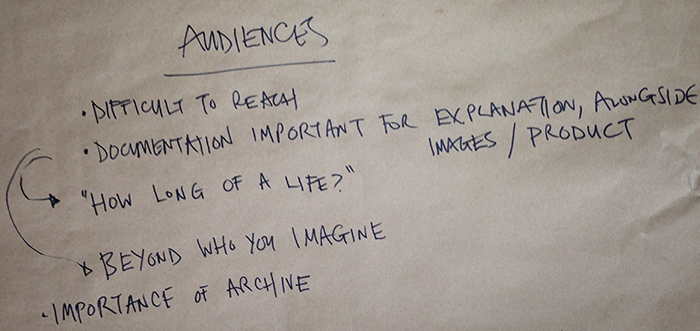 AUDIENCES
• DIFFICULT TO REACH
• DOCUMENTATION IMPORTANT FOR EXPLANATION, ALONGSIDE
IMAGES / PRODUCT
"HOW LONG OF A LIFE?"
BEYOND WHO YOU IMAGINE
• IMPORTANCE OF ARCHIVE